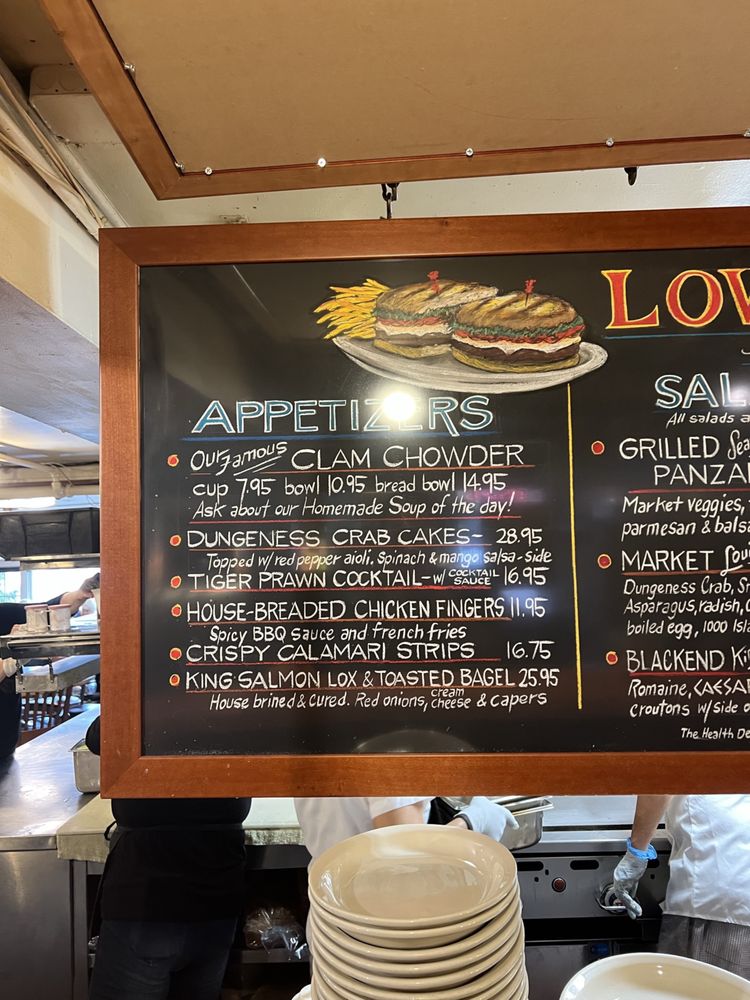 LOW
APPETIZERS
Our Famous CLAM CHOWDER
cup 7.95 bowl 10.95 bread bowl 14.95
Ask about our Homemade Soup of the day!
DUNGENESS CRAB CAKES- 28.95
Topped w/ red pepper aioli. Spinach & mango salsa-side
TIGER PRAWN COCKTAIL-w/ COCKTAIL SAUCE 16.95
HOUSE-BREADED CHICKEN FINGERS 11.95
Spicy BBQ sauce and french fries
CRISPY CALAMARI STRIPS 16.75
KING SALMON LOX & TOASTED BAGEL 25.95
House brined & cured. Red onions, cream cheese & capers
SAL
All salads a
GRILLED Sea
PANZA
Market veggies,
parmesan & balsa
MARKET Loui
Dungeness Crab, Sh
Asparagus, radish,
boiled egg, 1000 Isla
BLACKEND Ki
Romaine, CAESA
croutons w/ side o
The Health De